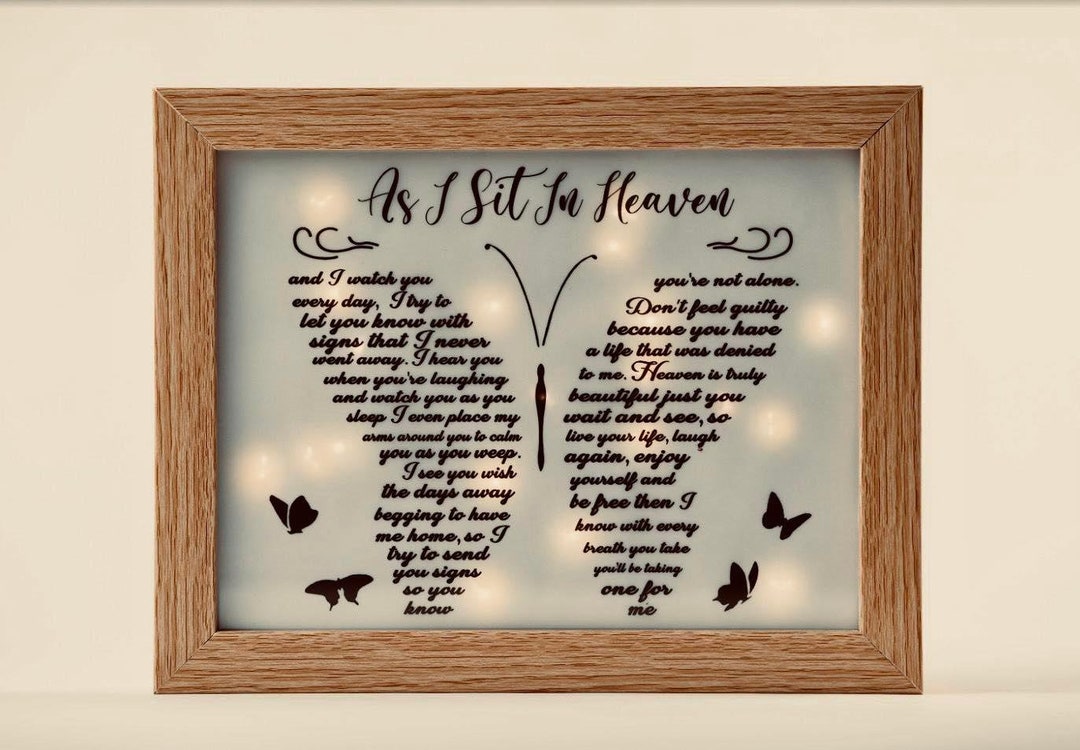 As I Sit In Heaven
and I watch you
every day, I try to
let you know with
signs that I never
went away. I hear you
when you're laughing
and watch you as you
sleep I even place my
arms around you to calm
you as you weep.
I see you wish
the days away
begging to have
me home, so I
try to send
you signs
so you
know
you're not alone.
Don't feel guilty
because you have
a life that was denied
to me. Heaven is truly
beautiful just you
wait and see, so
live your life, laugh
again, enjoy
yourself and
be free then I
know with every
breath you take
you'll be taking
one for
me